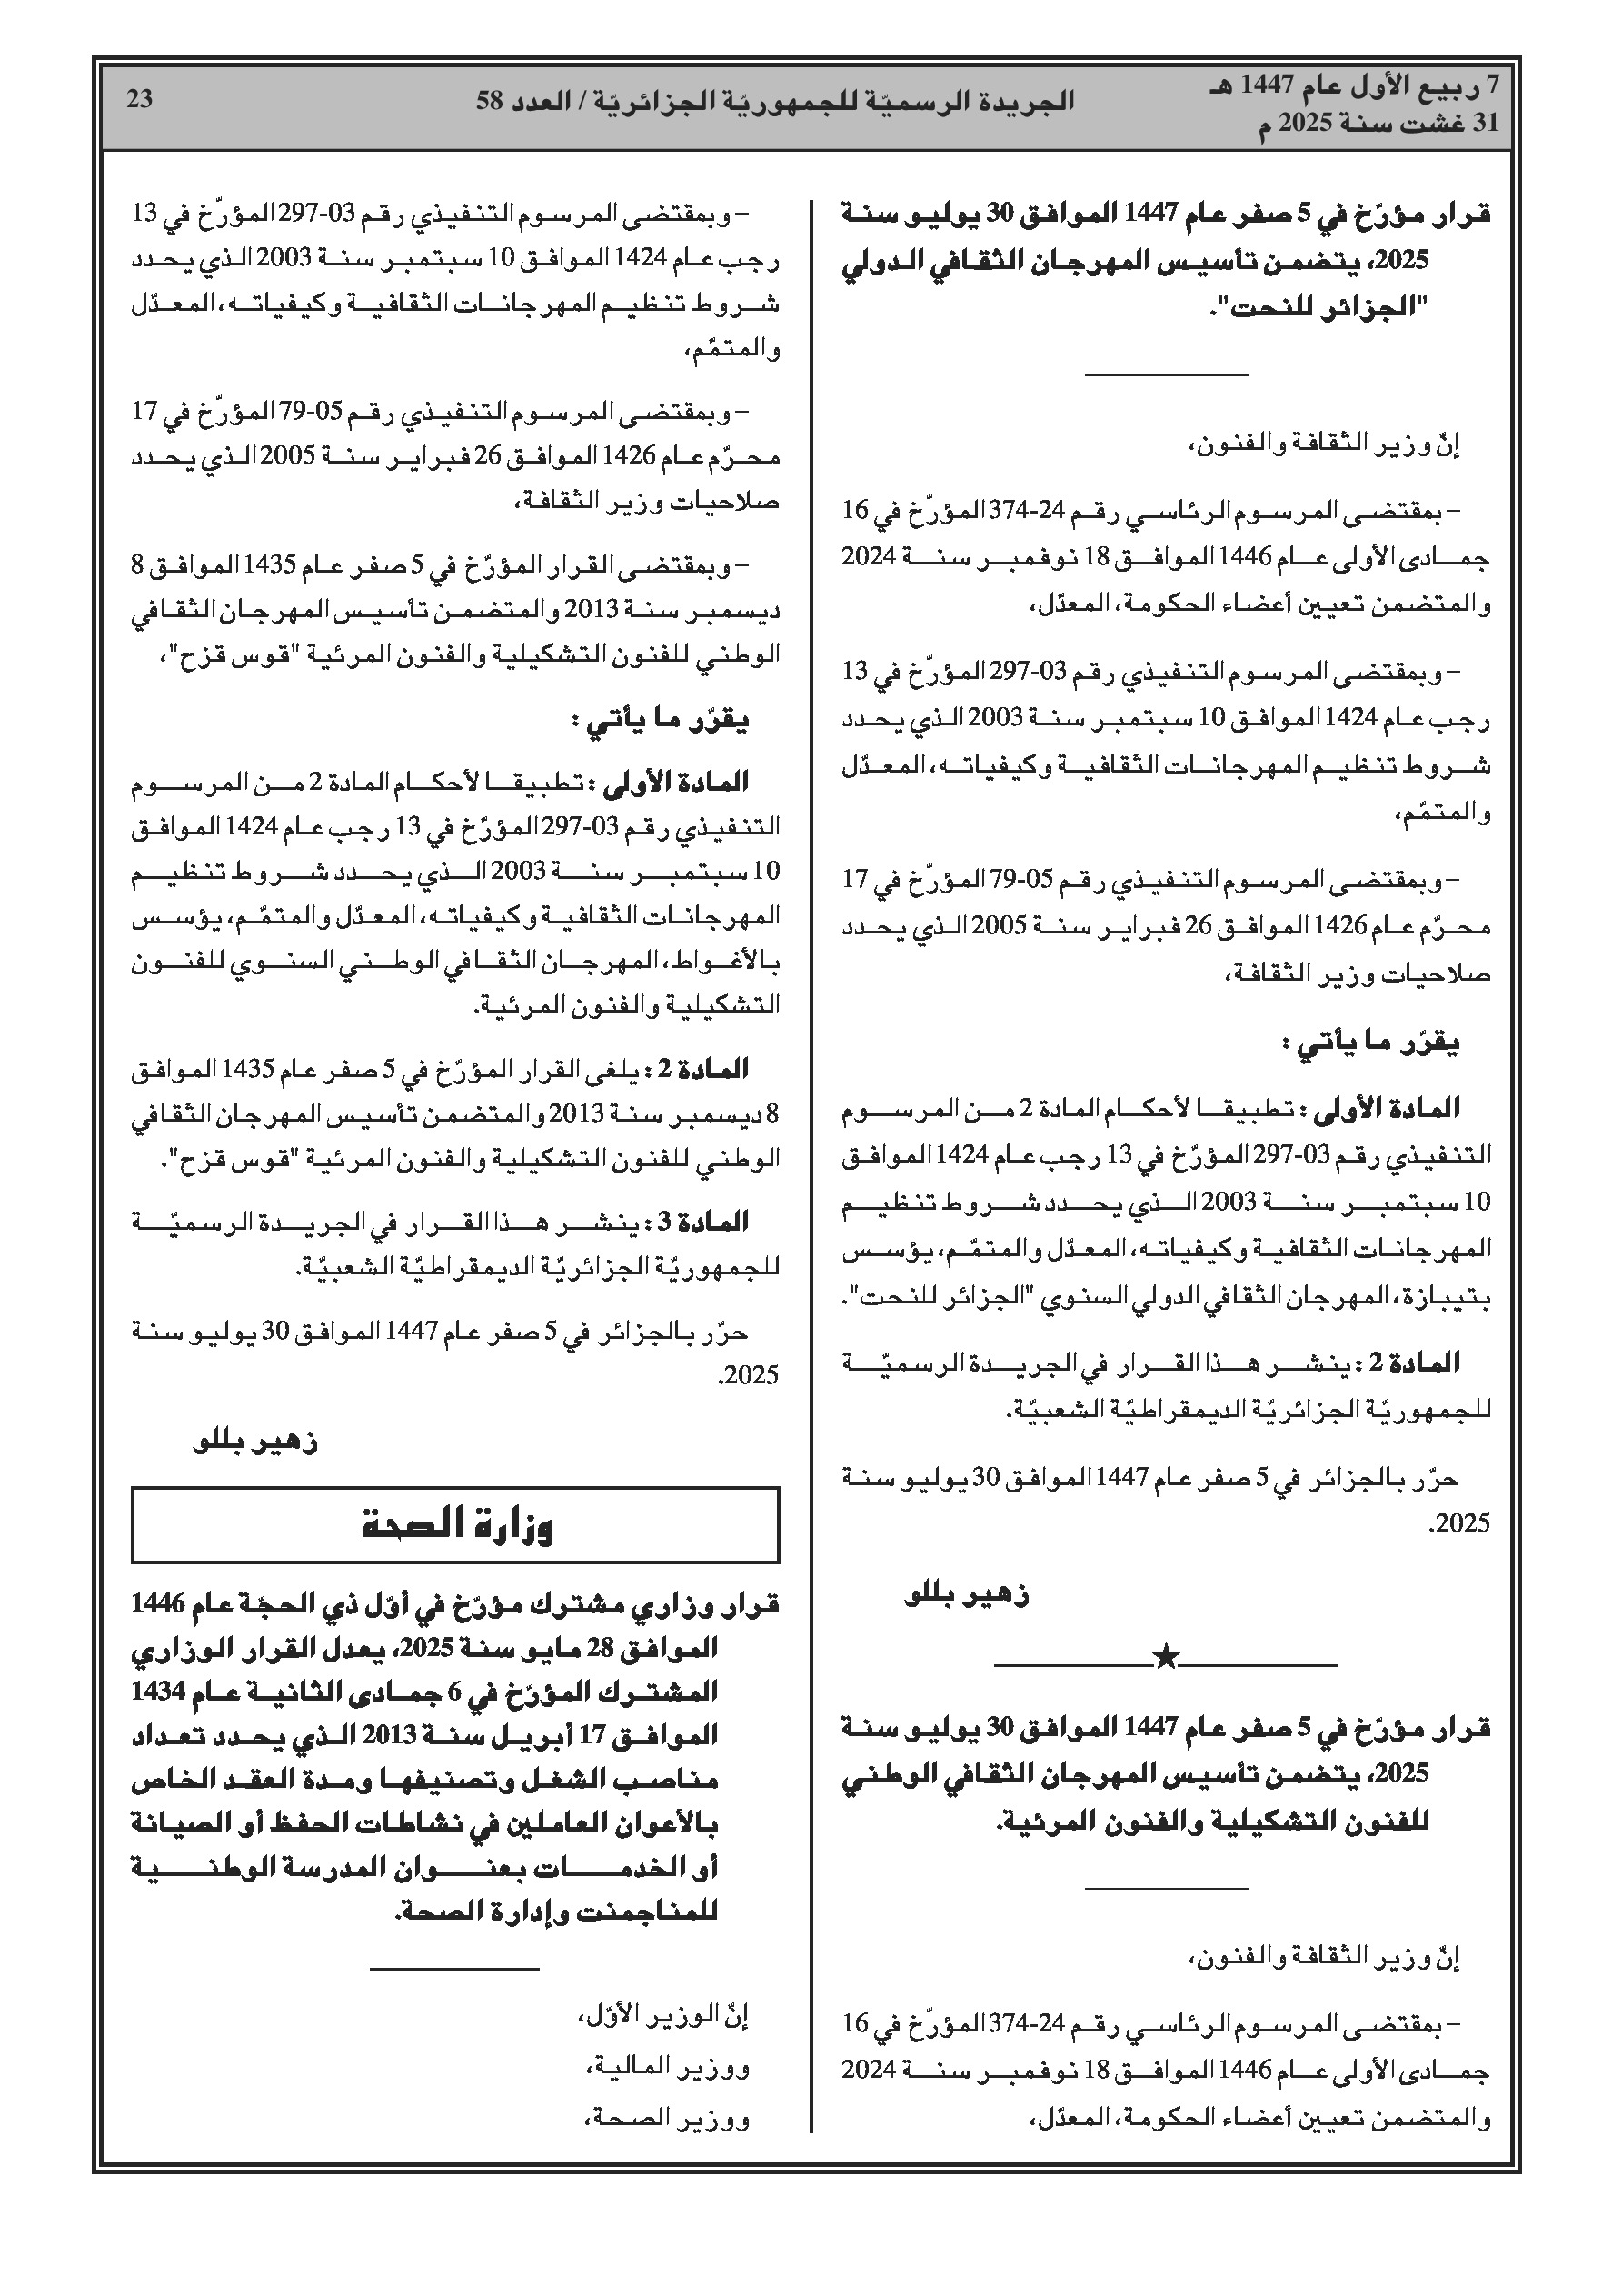 7 ربيع الأول عام 1447 هـ
31 غشت سنة 2025 م
الجريدة الرسميّة للجمهوريّة الجزائريّة / العدد 58
23
قرار مؤرّخ في 5 صفر عام 1447 الموافق 30 يوليو سنة
2025، يتضمن تأسيس المهرجان الثقافي الدولي
"الجزائر للنحت".
إنّ وزير الثقافة والفنون،
– بمقتضى المرسوم الرئاسي رقم 24-374 المؤرّخ في 16
جمادى الأولى عام 1446 الموافق 18 نوفمبر سنة 2024
والمتضمن تعيين أعضاء الحكومة، المعدّل،
– وبمقتضى المرسوم التنفيذي رقم 03-297 المؤرّخ في 13
رجب عام 1424 الموافق 10 سبتمبر سنة 2003 الذي يحدد
شروط تنظيم المهرجانات الثقافية وكيفياته، المعدّل
والمتمّم،
– وبمقتضى المرسوم التنفيذي رقم 05-79 المؤرّخ في 17
محرّم عام 1426 الموافق 26 فبراير سنة 2005 الذي يحدد
صلاحيات وزير الثقافة،
يقرّر ما يأتي :
المادة الأولى : تطبيقا لأحكام المادة 2 من المرسوم
التنفيذي رقم 03-297 المؤرّخ في 13 رجب عام 1424 الموافق
10 سبتمبر سنة 2003 الذي يحدد شروط تنظيم
المهرجانات الثقافية وكيفياته، المعدّل والمتمّم، يؤسس
بتيبازة، المهرجان الثقافي الدولي السنوي "الجزائر للنحت".
المادة 2 : ينشر هذا القرار في الجريدة الرسميّة
للجمهوريّة الجزائريّة الديمقراطيّة الشعبيّة.
حرّر بالجزائر في 5 صفر عام 1447 الموافق 30 يوليو سنة
2025.
زهير بللو
قرار مؤرّخ في 5 صفر عام 1447 الموافق 30 يوليو سنة
2025، يتضمن تأسيس المهرجان الثقافي الوطني
للفنون التشكيلية والفنون المرئية.
إنّ وزير الثقافة والفنون،
– بمقتضى المرسوم الرئاسي رقم 24-374 المؤرّخ في 16
جمادى الأولى عام 1446 الموافق 18 نوفمبر سنة 2024
والمتضمن تعيين أعضاء الحكومة، المعدّل،
– وبمقتضى المرسوم التنفيذي رقم 03-297 المؤرّخ في 13
رجب عام 1424 الموافق 10 سبتمبر سنة 2003 الذي يحدد
شروط تنظيم المهرجانات الثقافية وكيفياته، المعدّل
والمتمّم،
– وبمقتضى المرسوم التنفيذي رقم 05-79 المؤرّخ في 17
محرّم عام 1426 الموافق 26 فبراير سنة 2005 الذي يحدد
صلاحيات وزير الثقافة،
– وبمقتضى القرار المؤرّخ في 5 صفر عام 1435 الموافق 8
ديسمبر سنة 2013 والمتضمن تأسيس المهرجان الثقافي
الوطني للفنون التشكيلية والفنون المرئية "قوس قزح"،
يقرّر ما يأتي :
المادة الأولى : تطبيقا لأحكام المادة 2 من المرسوم
التنفيذي رقم 03-297 المؤرّخ في 13 رجب عام 1424 الموافق
10 سبتمبر سنة 2003 الذي يحدد شروط تنظيم
المهرجانات الثقافية وكيفياته، المعدّل والمتمّم، يؤسس
بالأغواط، المهرجان الثقافي الوطني السنوي للفنون
التشكيلية والفنون المرئية.
المادة 2 : يلغى القرار المؤرّخ في 5 صفر عام 1435 الموافق
8 ديسمبر سنة 2013 والمتضمن تأسيس المهرجان الثقافي
الوطني للفنون التشكيلية والفنون المرئية "قوس قزح".
المادة 3 : ينشر هذا القرار في الجريدة الرسميّة
للجمهوريّة الجزائريّة الديمقراطيّة الشعبيّة.
حرّر بالجزائر في 5 صفر عام 1447 الموافق 30 يوليو سنة
2025.
زهير بللو
وزارة الصحة
قرار وزاري مشترك مؤرّخ في أوّل ذي الحجّة عام 1446
الموافق 28 مايو سنة 2025، يعدل القرار الوزاري
المشترك المؤرّخ في 6 جمادى الثانية عام 1434
الموافق 17 أبريل سنة 2013 الذي يحدد تعداد
مناصب الشغل وتصنيفها ومدة العقد الخاص
بالأعوان العاملين في نشاطات الحفظ أو الصيانة
أو الخدمات بعنوان المدرسة الوطنية
للمناجمنت وإدارة الصحة.
إنّ الوزير الأوّل،
ووزير المالية،
ووزير الصحة،